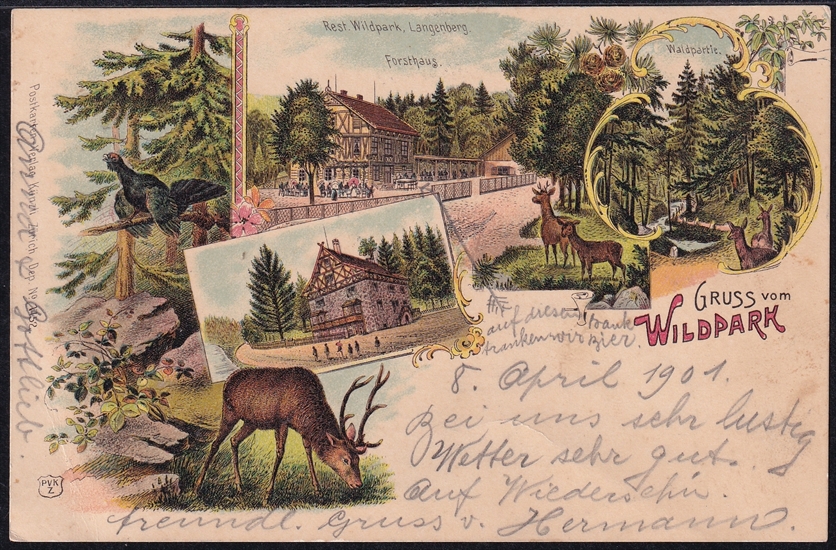 Rest. Wildpark, Langenberg.
Forsthaus.
Waldpartie.
GRUSS vom
WILDPARK
auf dieser Bank
tranken wir Bier.
8. April 1901.
Bei uns sehr lustig
Wetter sehr gut.
Auf Wiedersehn.
freundl. Gruss v. Hermann.
Postkarten Verlag Künzli, Zürich Dep. No.
Anna & Gottlieb.
PVK
Z